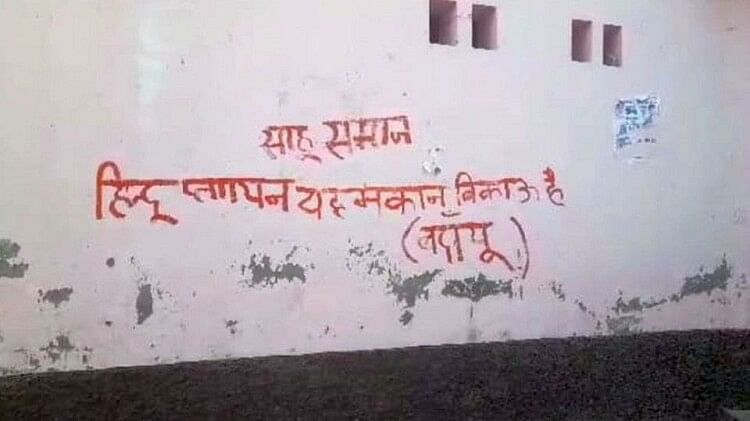 साहू समाज
हिन्दू पलायन यह मकान बिकाऊ है
(बदाँयू)